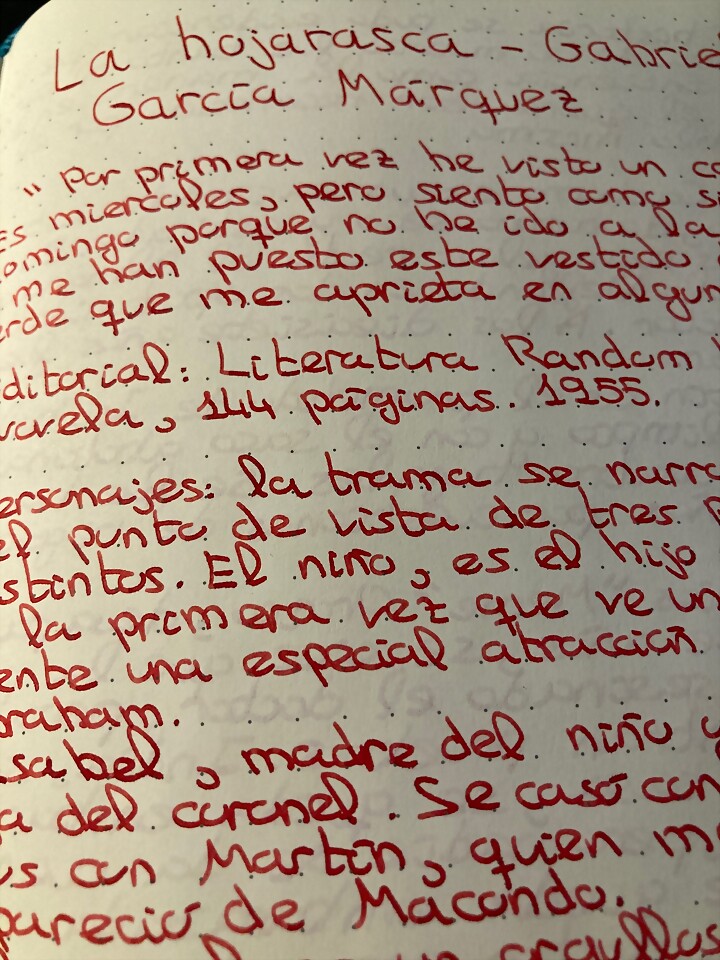 La hojarasca - Gabrie
García Márquez
"Por primera vez he visto un c
Es miercoles, pero siento como s
omingo porque no he ido a la
me han puesto este vestido
erde que me aprieta en algun
ditorial: Literatura Random
ovela, 144 páginas. 1955.
ersonajes: la trama se narra
el punto de vista de tres
stintos. El niño, es el hijo
la primera vez que ve un
ente una especial atracción
braham.
sabel, madre del niño y
a del coronel. Se casó con
os con Martín, quien m
pareció de Macondo.
un orgullos